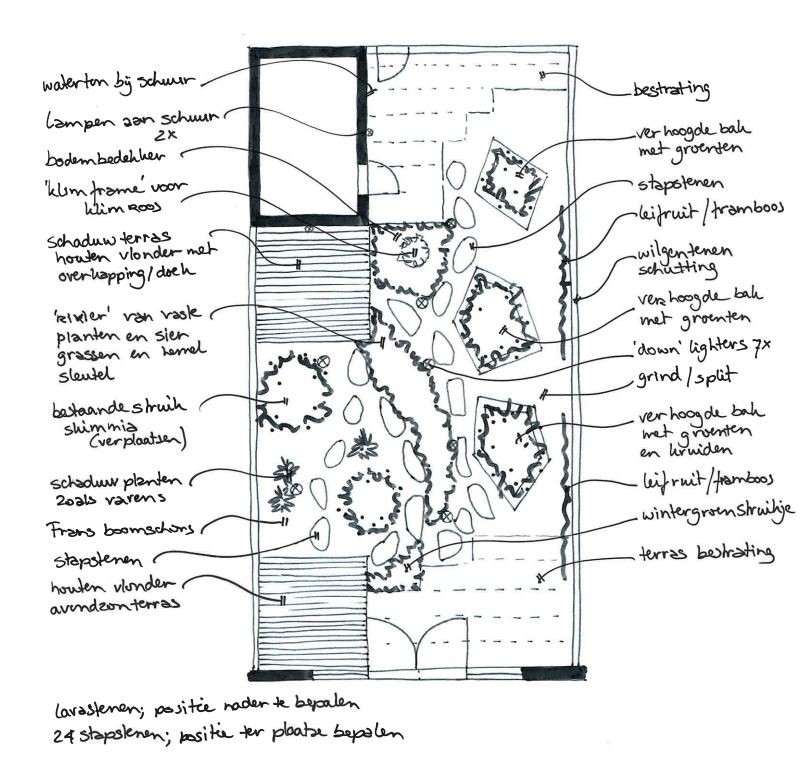 waterton bij schuur
lampen aan schuur
2x
bodembedekker
'klimframe' voor
klimroos
schaduwterras
houten vlonder met
overkapping/doek
'rivier' van vaste
planten en sier
grassen en hemel
sleutel
bestaande struik
skimmia
(verplaatsen)
schaduwplanten
zoals varens
Frans boomschors
stapstenen
houten vlonder
avondzonterras
bestrating
verhoogde bak
met groenten
stapstenen
leifruit/framboos
wilgentenen
schutting
verhoogde bak
met groenten
'down' lighters 7x
grind/split
verhoogde bak
met groenten
en kruiden
leifruit/framboos
wintergroenstruikje
terras bestrating
lavastenen; positie nader te bepalen
24 stapstenen; positie ter plaatse bepalen